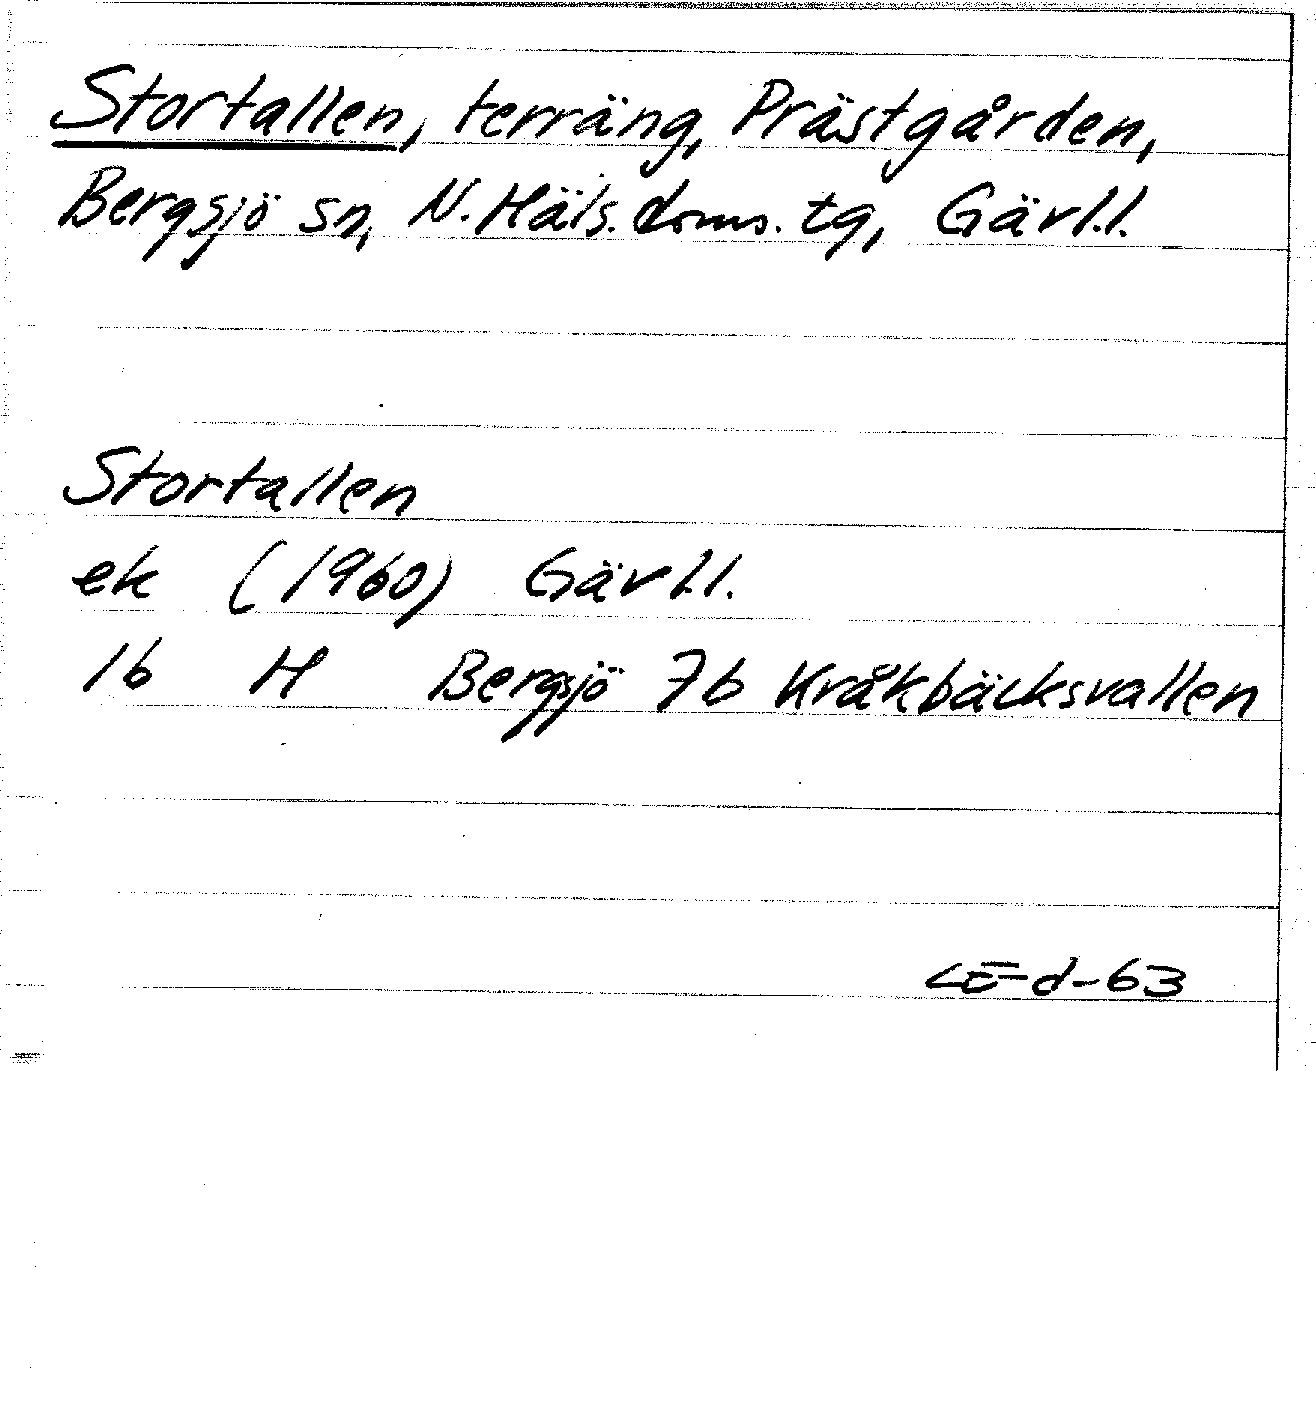 Stortallen, terräng, Prästgården,
Bergsjö sn, N. Häls. doms. tg, Gävl.l.
Stortallen
ek (1960) Gävl.l.
1b H Bergsjö 7b Kråkbäcksvallen
d-63